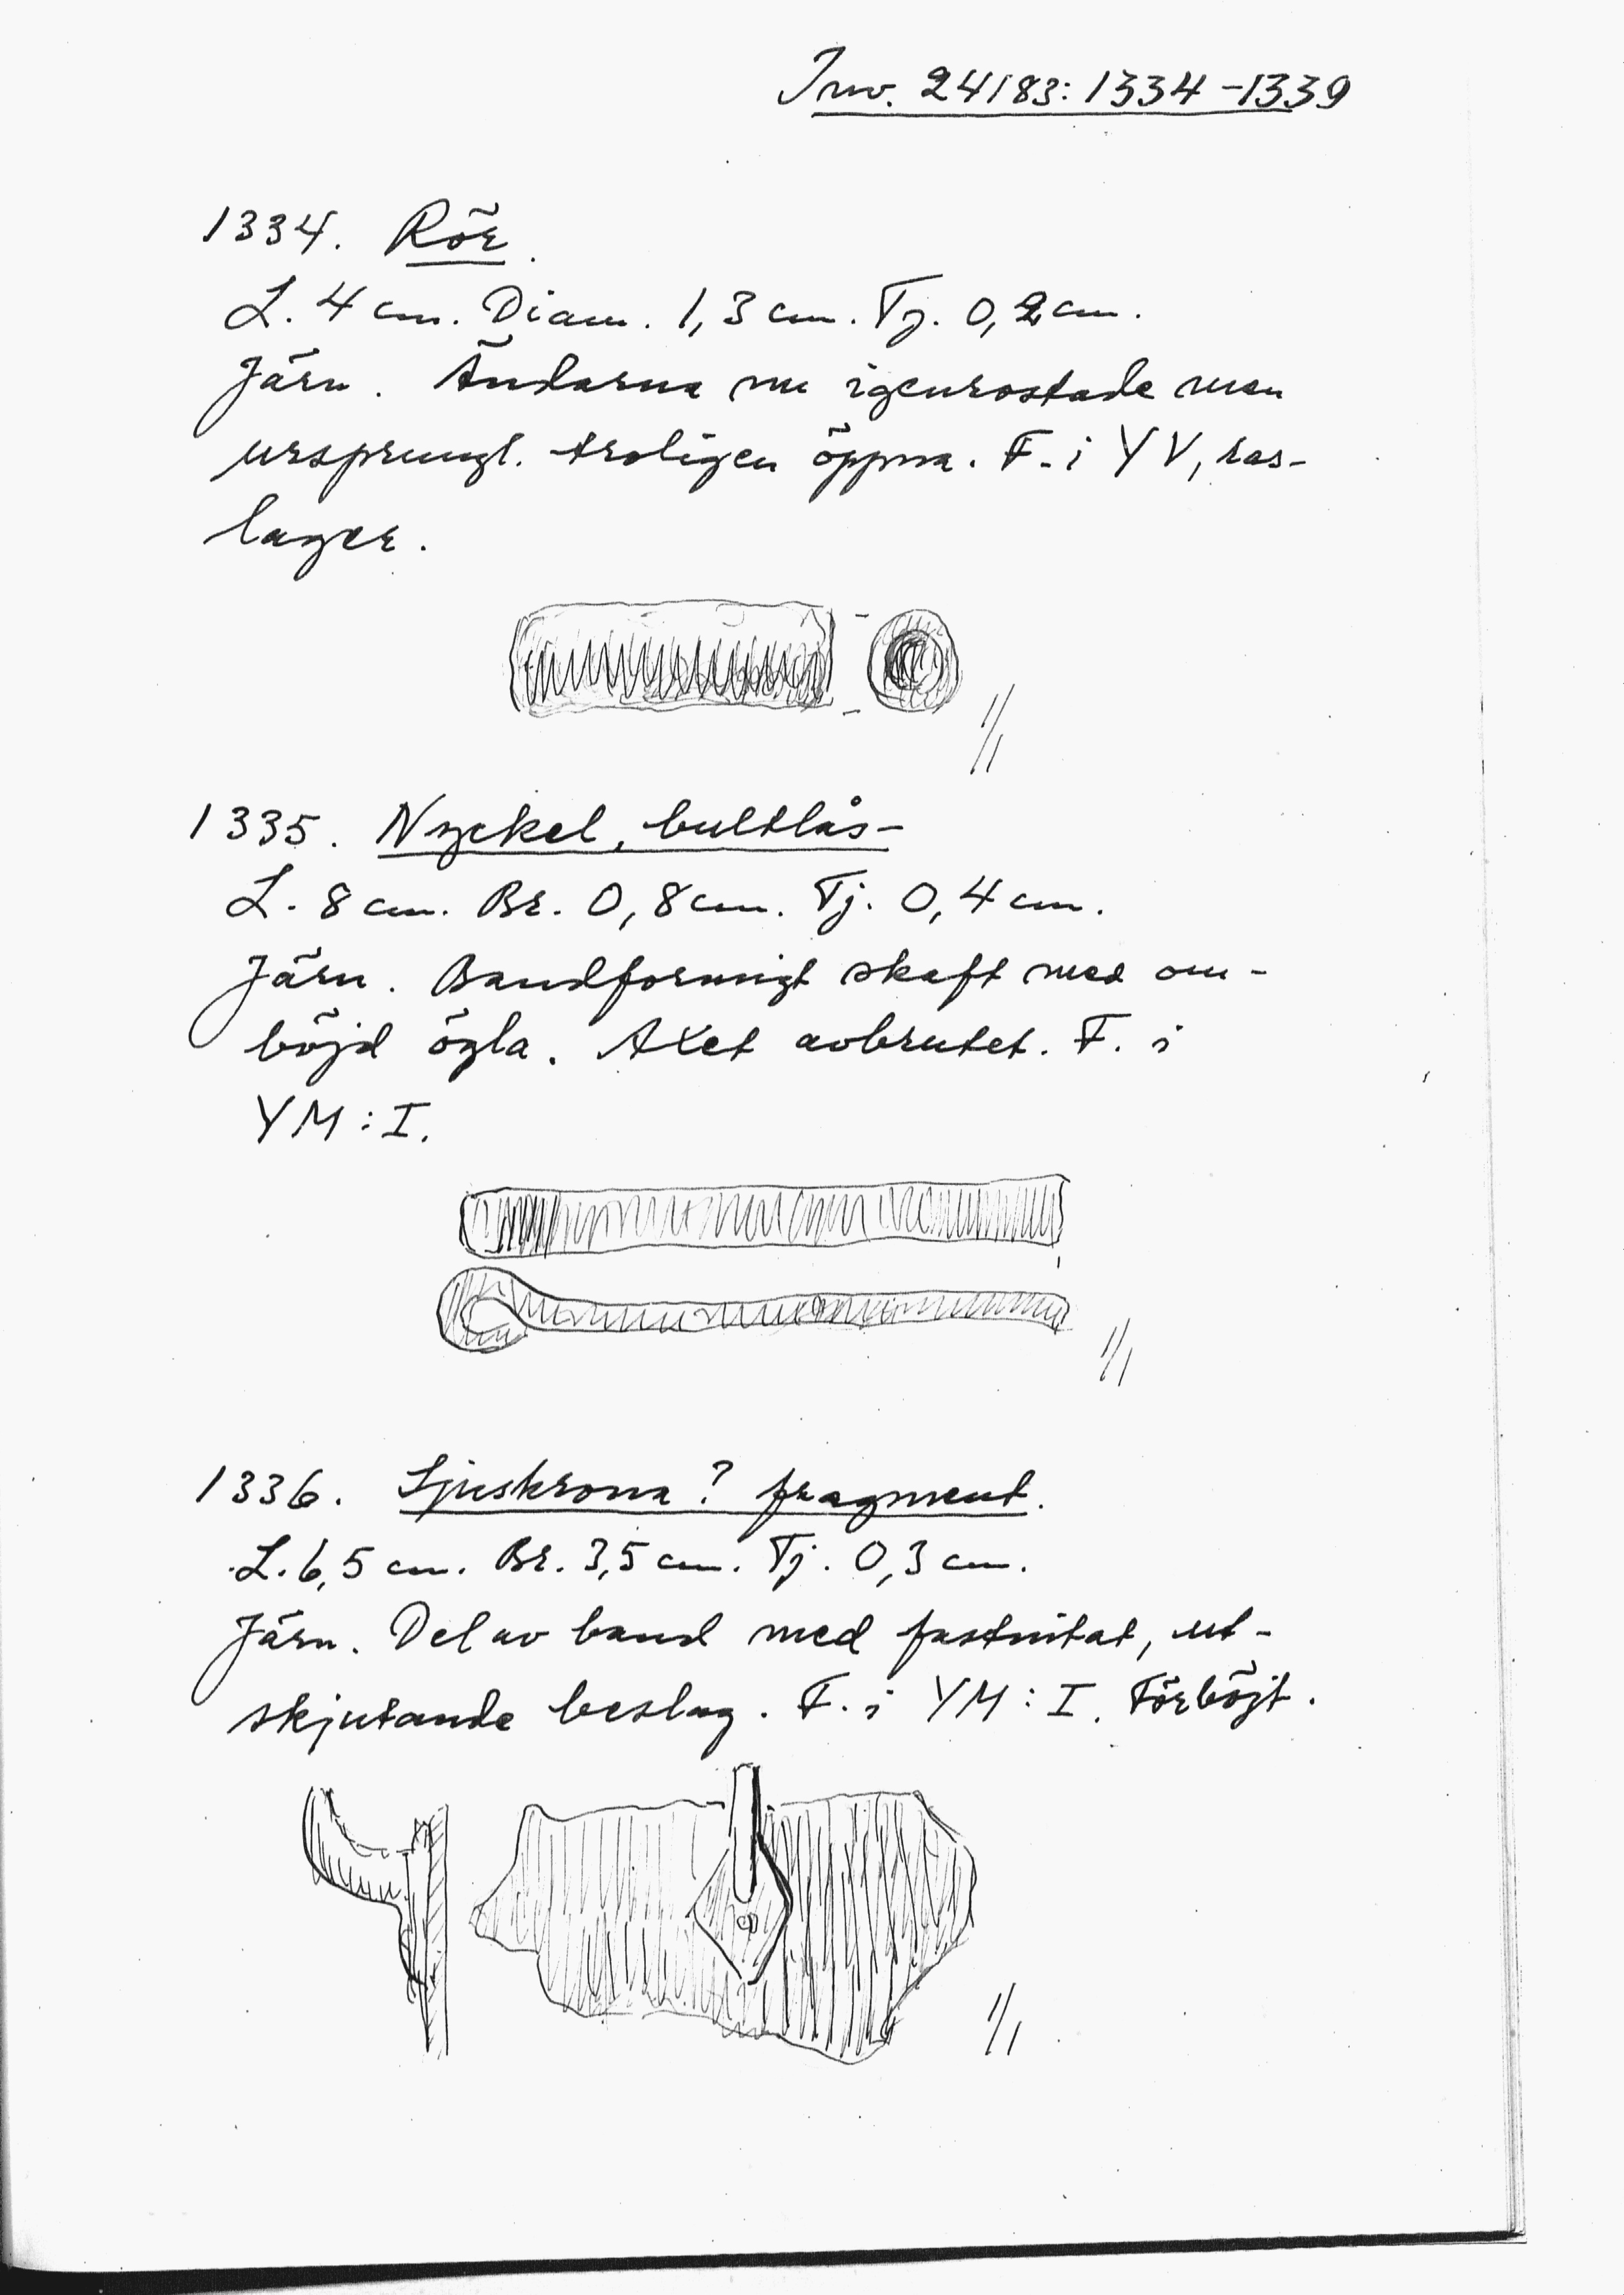 Inv. 24183:1334-1339
1334. Rör.
L. 4 cm. Diam. 1,3 cm. Tj. 0,2 cm.
Järn. Ändarna nu igenrostade men
ursprungl. troligen öppna. F. i YV, ras-
lager.
1/1
1335. Nyckel, bultlås-
L. 8 cm. Br. 0,8 cm. Tj. 0,4 cm.
Järn. Bandformigt skaft med om-
böjd ögla. Axet avbrutet. F. i
YM:I.
1/1
1336. Ljuskrona? fragment.
L. 6,5 cm. Br. 3,5 cm. Tj. 0,3 cm.
Järn. Del av band med fastnitat, ut-
skjutande beslag. F. i YM:I. Förböjt.
1/1